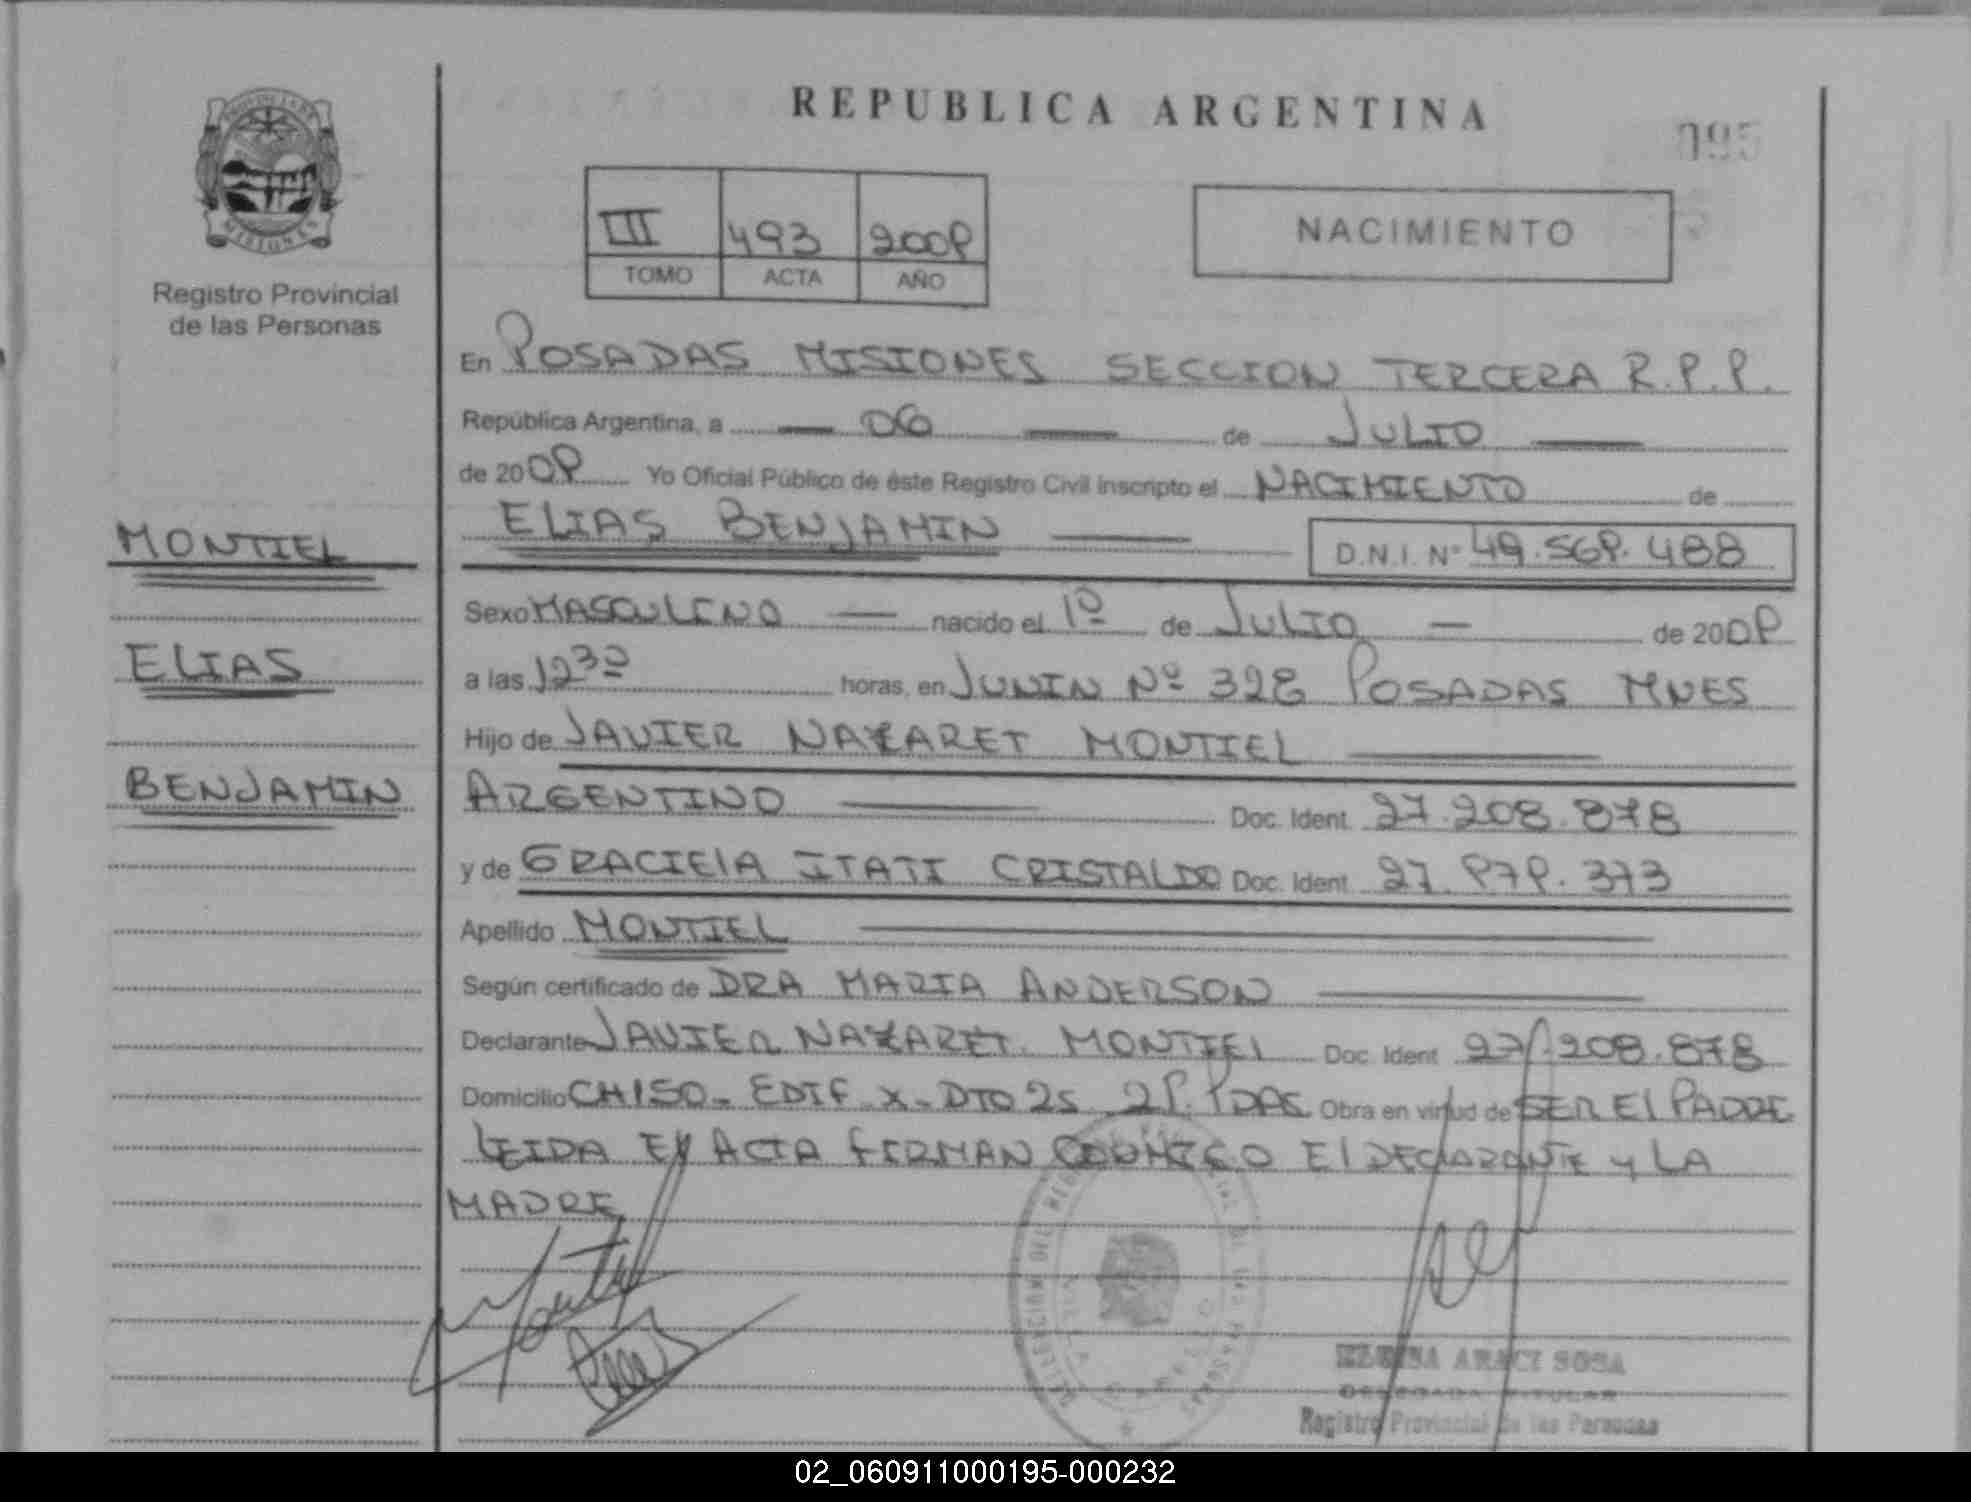 REPUBLICA ARGENTINA
095
PROVINCIA DE
MISIONES
Registro Provincial
de las Personas
III 493 2009
TOMO ACTA AÑO
NACIMIENTO
En POSADAS MISIONES SECCION TERCERA R.P.P.
República Argentina, a — 06 — de JULIO —
de 2009 Yo Oficial Público de éste Registro Civil inscripto el NACIMIENTO de
ELIAS BENJAMIN — D.N.I. Nº 49.569.488
MONTIEL
ELIAS
BENJAMIN
Sexo MASCULINO — nacido el 1º de JULIO — de 2009
a las 12³⁰ horas, en JUNIN Nº 328 POSADAS MNES
Hijo de JAVIER NAZARET MONTIEL —
ARGENTINO — Doc. Ident. 27.208.878
y de GRACIElA ITATI CRISTALDO Doc. Ident. 27.979.373
Apellido MONTIEL —
Según certificado de DRA MARIA ANDERSON —
Declarante JAVIER NAZARET MONTIEl Doc. Ident. 27.208.878
Domicilio CH150- EDIF X- DTO 2S 2P. PDAS Obra en virtud de SER El PADRE
LEIDA El ACTA FIRMAN CONMIGO El DECLARANTE y LA
MADRE
ARACI SOSA
DELEGADA TITULAR
Registro Provincial de las Personas
02_060911000195-000232